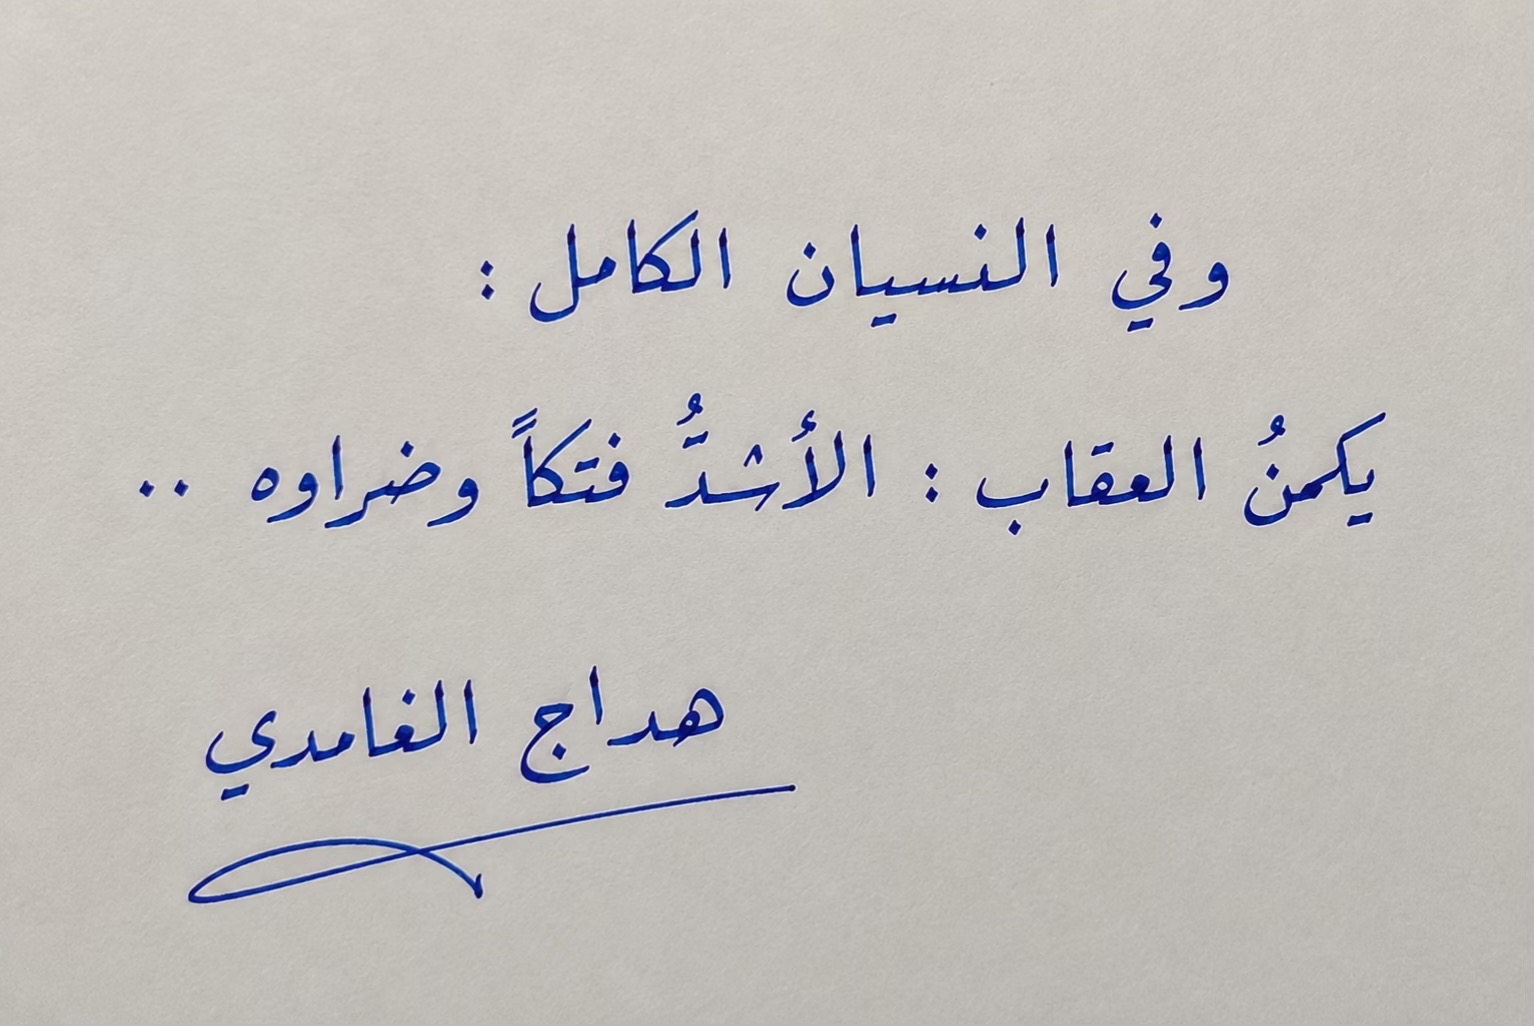 وفي النسيان الكامل :
يكمنُ العقاب : الأشدُّ فتكاً وضراوه ..
هداج الغامدي